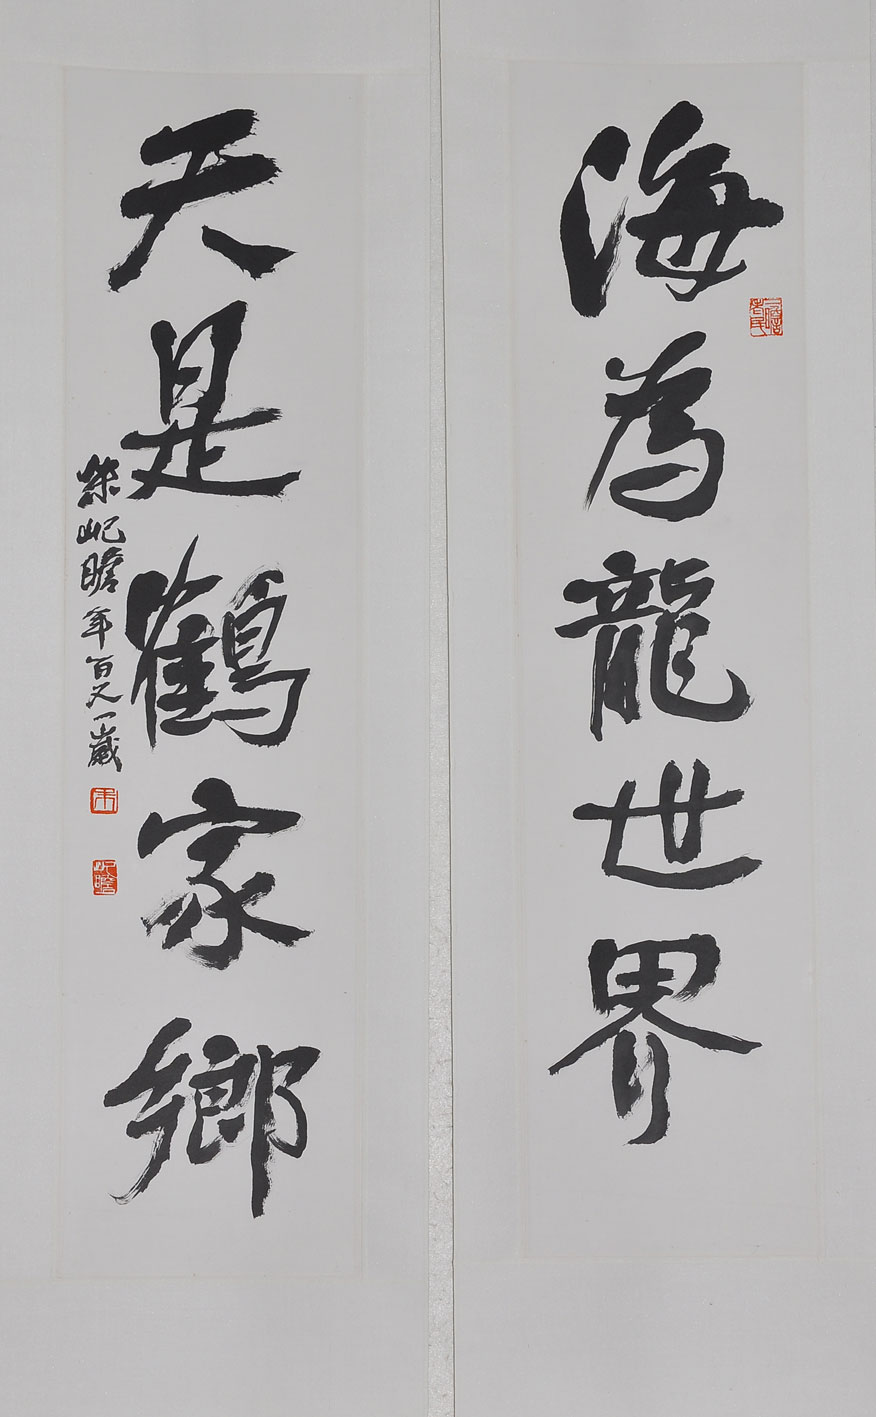 海為龍世界
天是鶴家鄉
朱屺瞻年百又一歲
朱
屺瞻